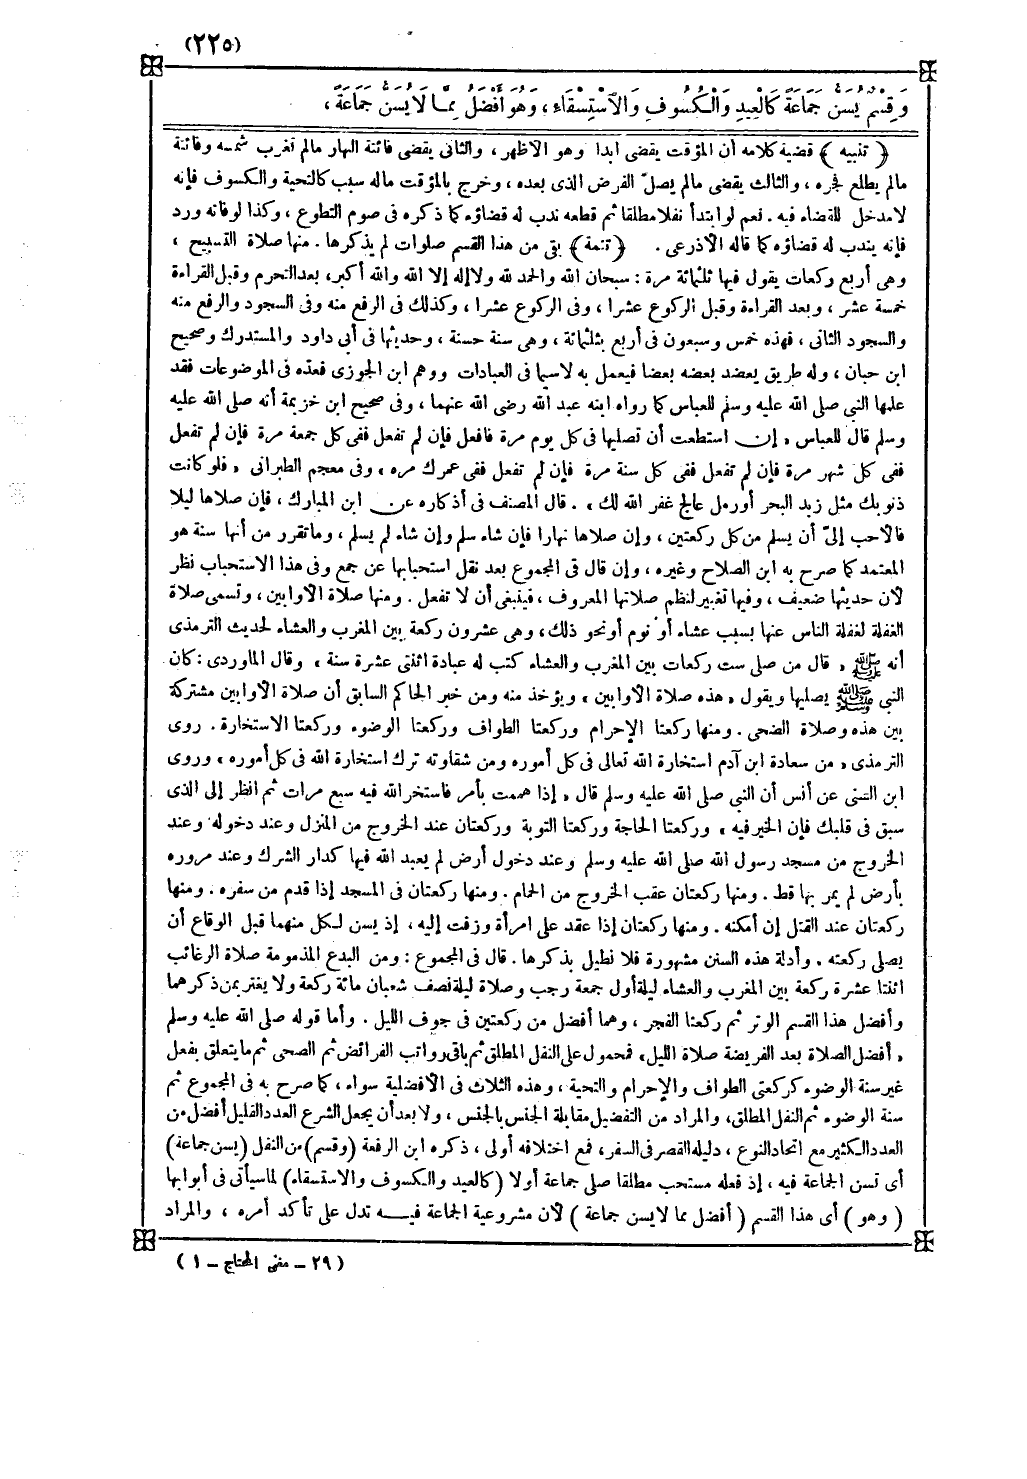 (٢٢٥)
وَقِسْمٌ يُسَنُّ جَمَاعَةً كَالْعِيدِ وَالْكُسُوفِ وَالِاسْتِسْقَاءِ ، وَهُوَ أَفْضَلُ مِمَّا لَا يُسَنُّ جَمَاعَةً ،
﴿ تنبيه ﴾ قضية كلامه أن المؤقت يقضى أبدا وهو الأظهر ، والثانى يقضى فائتة النهار مالم تغرب شمسه وفائتة
مالم يطلع فجره ، والثالث يقضى مالم يصلّ الفرض الذى بعده ، وخرج بالمؤقت ماله سبب كالتحية والكسوف فإنه
لامدخل للقضاء فيه . نعم لو ابتدأ نفلا مطلقا ثم قطعه ندب له قضاؤه كما ذكره فى صوم التطوع ، وكذا لو فاته ورد
فإنه يندب له قضاؤه كما قاله الأذرعى . ﴿ تتمة ﴾ بقى من هذا القسم صلوات لم يذكرها . منها صلاة التسبيح ،
وهى أربع ركعات يقول فيها ثلثمائة مرة : سبحان الله والحمد لله ولا إله إلا الله والله أكبر، بعد التحرم وقبل القراءة
خمسة عشر ، وبعد القراءة وقبل الركوع عشرا ، وفى الركوع عشرا ، وكذلك فى الرفع منه وفى السجود والرفع منه
والسجود الثانى ، فهذه خمس وسبعون فى أربع بثلثمائة ، وهى سنة حسنة ، وحديثها فى أبى داود والمستدرك وصحيح
ابن حبان ، وله طريق يعضد بعضه بعضا فيعمل به لاسيما فى العبادات ووهم ابن الجوزى فعدّه فى الموضوعات فقد
علمها النبى صلى الله عليه وسلم للعباس كما رواه ابنه عبد الله رضى الله عنهما ، وفى صحيح ابن خزيمة أنه صلى الله عليه
وسلم قال للعباس « إن استطعت أن تصليها فى كل يوم مرة فافعل فإن لم تفعل ففى كل جمعة مرة فإن لم تفعل
ففى كل شهر مرة فإن لم تفعل ففى كل سنة مرة فإن لم تفعل ففى عمرك مره » وفى معجم الطبرانى « فلو كانت
ذنوبك مثل زبد البحر أو رمل عالج غفر الله لك » . قال المصنف فى أذكاره عن ابن المبارك ، فإن صلاها ليلا
فالأحب إلىّ أن يسلم من كل ركعتين ، وإن صلاها نهارا فإن شاء سلم وإن شاء لم يسلم ، وماتقرر من أنها سنة هو
المعتمد كما صرح به ابن الصلاح وغيره ، وإن قال فى المجموع بعد نقل استحبابها عن جمع وفى هذا الاستحباب نظر
لأن حديثها ضعيف ، وفيها تغيير لنظم صلاتها المعروف ، فينبغى أن لا تفعل . ومنها صلاة الأوابين ، وتسمى صلاة
الغفلة لغفلة الناس عنها بسبب عشاء أو نوم أو نحو ذلك ، وهى عشرون ركعة بين المغرب والعشاء لحديث الترمذى
أنه ﷺ « قال من صلى ست ركعات بين المغرب والعشاء كتب له عبادة اثنتى عشرة سنة » وقال الماوردى : كان
النبى ﷺ يصليها ويقول « هذه صلاة الأوابين » ويؤخذ منه ومن خبر الحاكم السابق أن صلاة الأوابين مشتركة
بين هذه وصلاة الضحى . ومنها ركعتا الإحرام وركعتا الطواف وركعتا الوضوء وركعتا الاستخارة . روى
الترمذى « من سعادة ابن آدم استخارة الله تعالى فى كل أموره ومن شقاوته ترك استخارة الله فى كل أموره » وروى
ابن السنى عن أنس أن النبى صلى الله عليه وسلم قال « إذا هممت بأمر فاستخر الله فيه سبع مرات ثم انظر إلى الذى
سبق فى قلبك فإن الخير فيه » وركعتا الحاجة وركعتا التوبة وركعتان عند الخروج من المنزل وعند دخوله وعند
الخروج من مسجد رسول الله صلى الله عليه وسلم وعند دخول أرض لم يعبد الله فيها كدار الشرك وعند مروره
بأرض لم يمر بها قط . ومنها ركعتان عقب الخروج من الحمام . ومنها ركعتان فى المسجد إذا قدم من سفره . ومنها
ركعتان عند القتل إن أمكنه . ومنها ركعتان إذا عقد على امرأة وزفت إليه ، إذ يسن لكل منهما قبل الوقاع أن
يصلى ركعته . وأدلة هذه السنن مشهورة فلا نطيل بذكرها . قال فى المجموع : ومن البدع المذمومة صلاة الرغائب
اثنتا عشرة ركعة بين المغرب والعشاء ليلة أول جمعة رجب وصلاة ليلة نصف شعبان مائة ركعة ولا يغتر بمن ذكرهما
وأفضل هذا القسم الوتر ثم ركعتا الفجر ، وهما أفضل من ركعتين فى جوف الليل . وأما قوله صلى الله عليه وسلم
« أفضل الصلاة بعد الفريضة صلاة الليل » فمحمول على النفل المطلق ثم باقى رواتب الفرائض ثم الضحى ثم ما يتعلق بفعل
غير سنة الوضوء كركعتى الطواف والإحرام والتحية ، وهذه الثلاث فى الأفضلية سواء ، كما صرح به فى المجموع ثم
سنة الوضوء ثم النفل المطلق، والمراد من التفضيل مقابلة الجنس بالجنس ، ولا بعد أن يجعل الشرع العدد القليل أفضل من
العدد الكثير مع اتحاد النوع ، دليله القصر فى السفر ، فمع اختلافه أولى ، ذكره ابن الرفعة (وقسم) من النفل (يسن جماعة)
أى تسن الجماعة فيه ، إذ فعله مستحب مطلقا صلى جماعة أولا (كالعيد والكسوف والاستسقاء) لما سيأتى فى أبوابها
( وهو ) أى هذا القسم ( أفضل مما لايسن جماعة ) لأن مشروعية الجماعة فيه تدل على تأكد أمره ، والمراد
( ٢٩ – مغنى المحتاج – ١ )